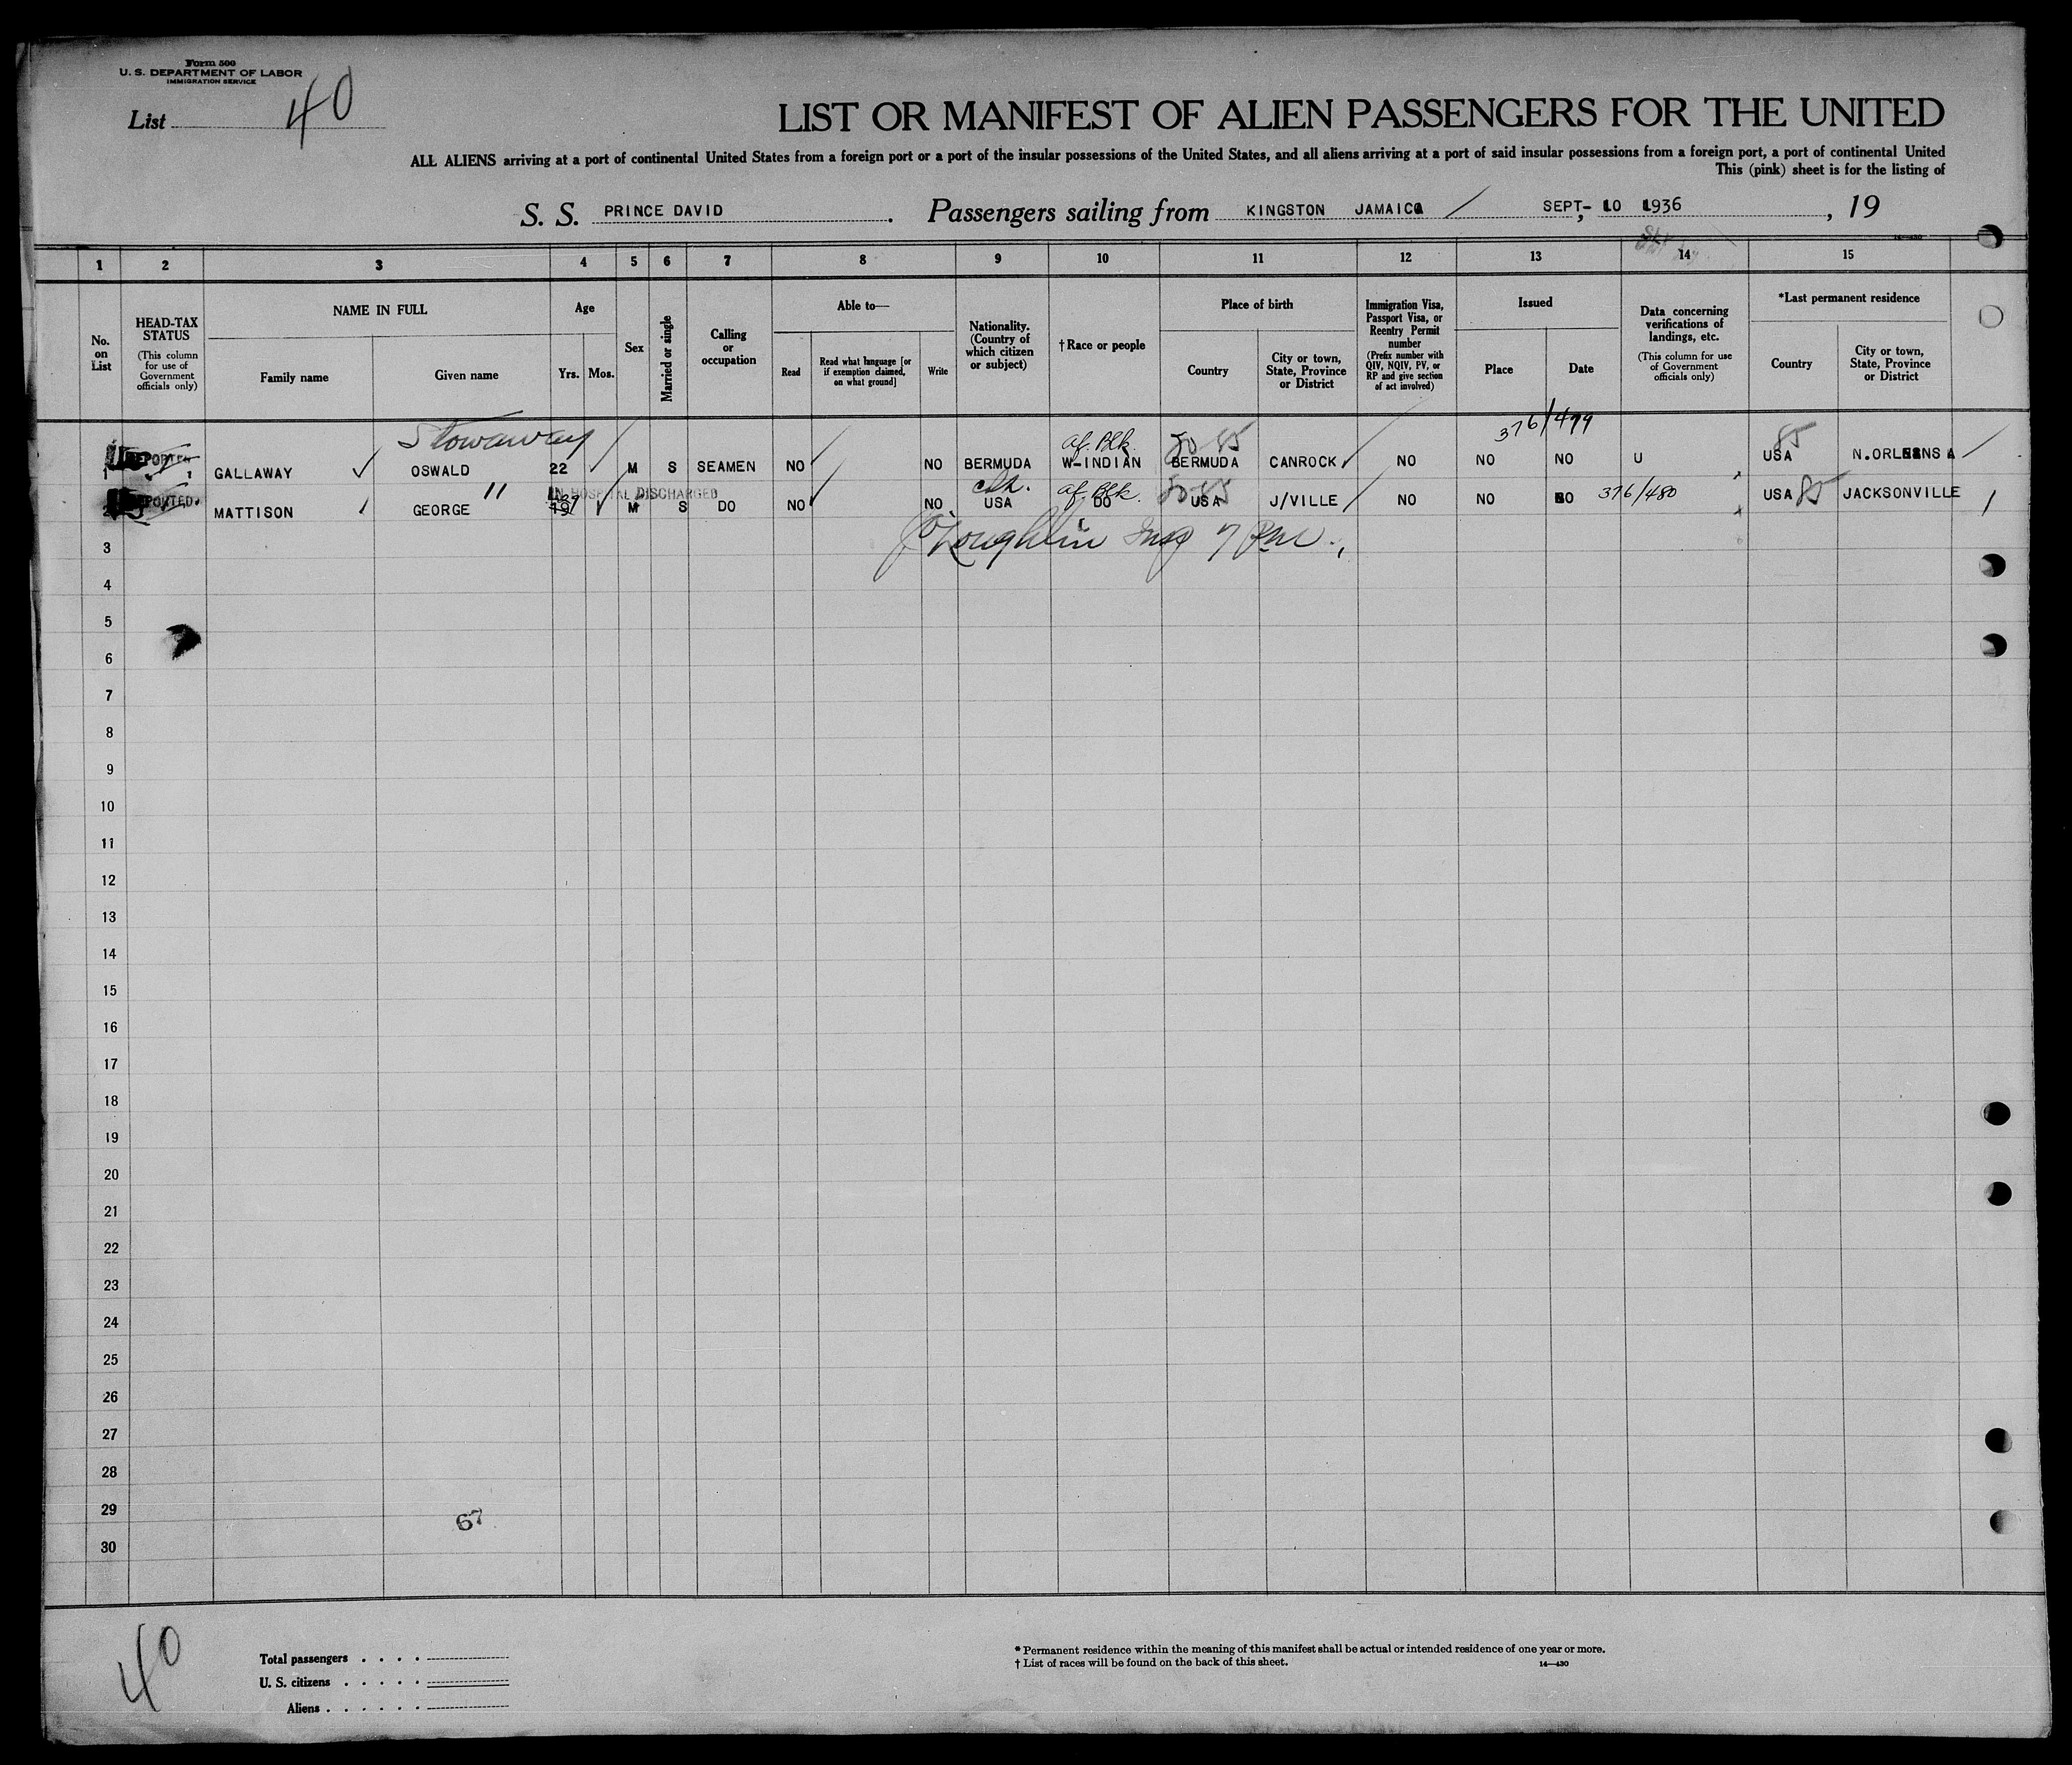 Form 500
U. S. DEPARTMENT OF LABOR
IMMIGRATION SERVICE
List 40
LIST OR MANIFEST OF ALIEN PASSENGERS FOR THE UNITED
ALL ALIENS arriving at a port of continental United States from a foreign port or a port of the insular possessions of the United States, and all aliens arriving at a port of said insular possessions from a foreign port, a port of continental United
This (pink) sheet is for the listing of
S. S. PRINCE DAVID . Passengers sailing from KINGSTON JAMAICA SEPT,- 10 1936 , 19
1 2 3 4 5 6 7 8 9 10 11 12 13 14 15
No. on List
HEAD-TAX STATUS (This column for use of Government officials only)
NAME IN FULL
Family name Given name
Age
Yrs. Mos.
Sex
Married or single
Calling or occupation
Able to—
Read Read what language [or if exemption claimed, on what ground] Write
Nationality. (Country of which citizen or subject)
†Race or people
Place of birth
Country City or town, State, Province or District
Immigration Visa, Passport Visa, or Reentry Permit number (Prefix number with QIV, NQIV, PV, or RP and give section of act involved)
Issued
Place Date
Data concerning verifications of landings, etc. (This column for use of Government officials only)
*Last permanent residence
Country City or town, State, Province or District
Stowaway af. Blk. 376/479 85
1 GALLAWAY OSWALD 22 M S SEAMEN NO NO BERMUDA W-INDIAN BERMUDA CANROCK NO NO NO U USA N.ORLEANS
11 IN HOSPITAL DISCHARGED af. Blk. 376/480 85
2 MATTISON GEORGE M S DO NO NO USA DO USA J/VILLE NO NO NO USA JACKSONVILLE
O'Loughlin Insp 7 Pm.
3
4
5
6
7
8
9
10
11
12
13
14
15
16
17
18
19
20
21
22
23
24
25
26
27
28
29
67
30
40
Total passengers
U. S. citizens
Aliens
* Permanent residence within the meaning of this manifest shall be actual or intended residence of one year or more.
† List of races will be found on the back of this sheet. 14—430